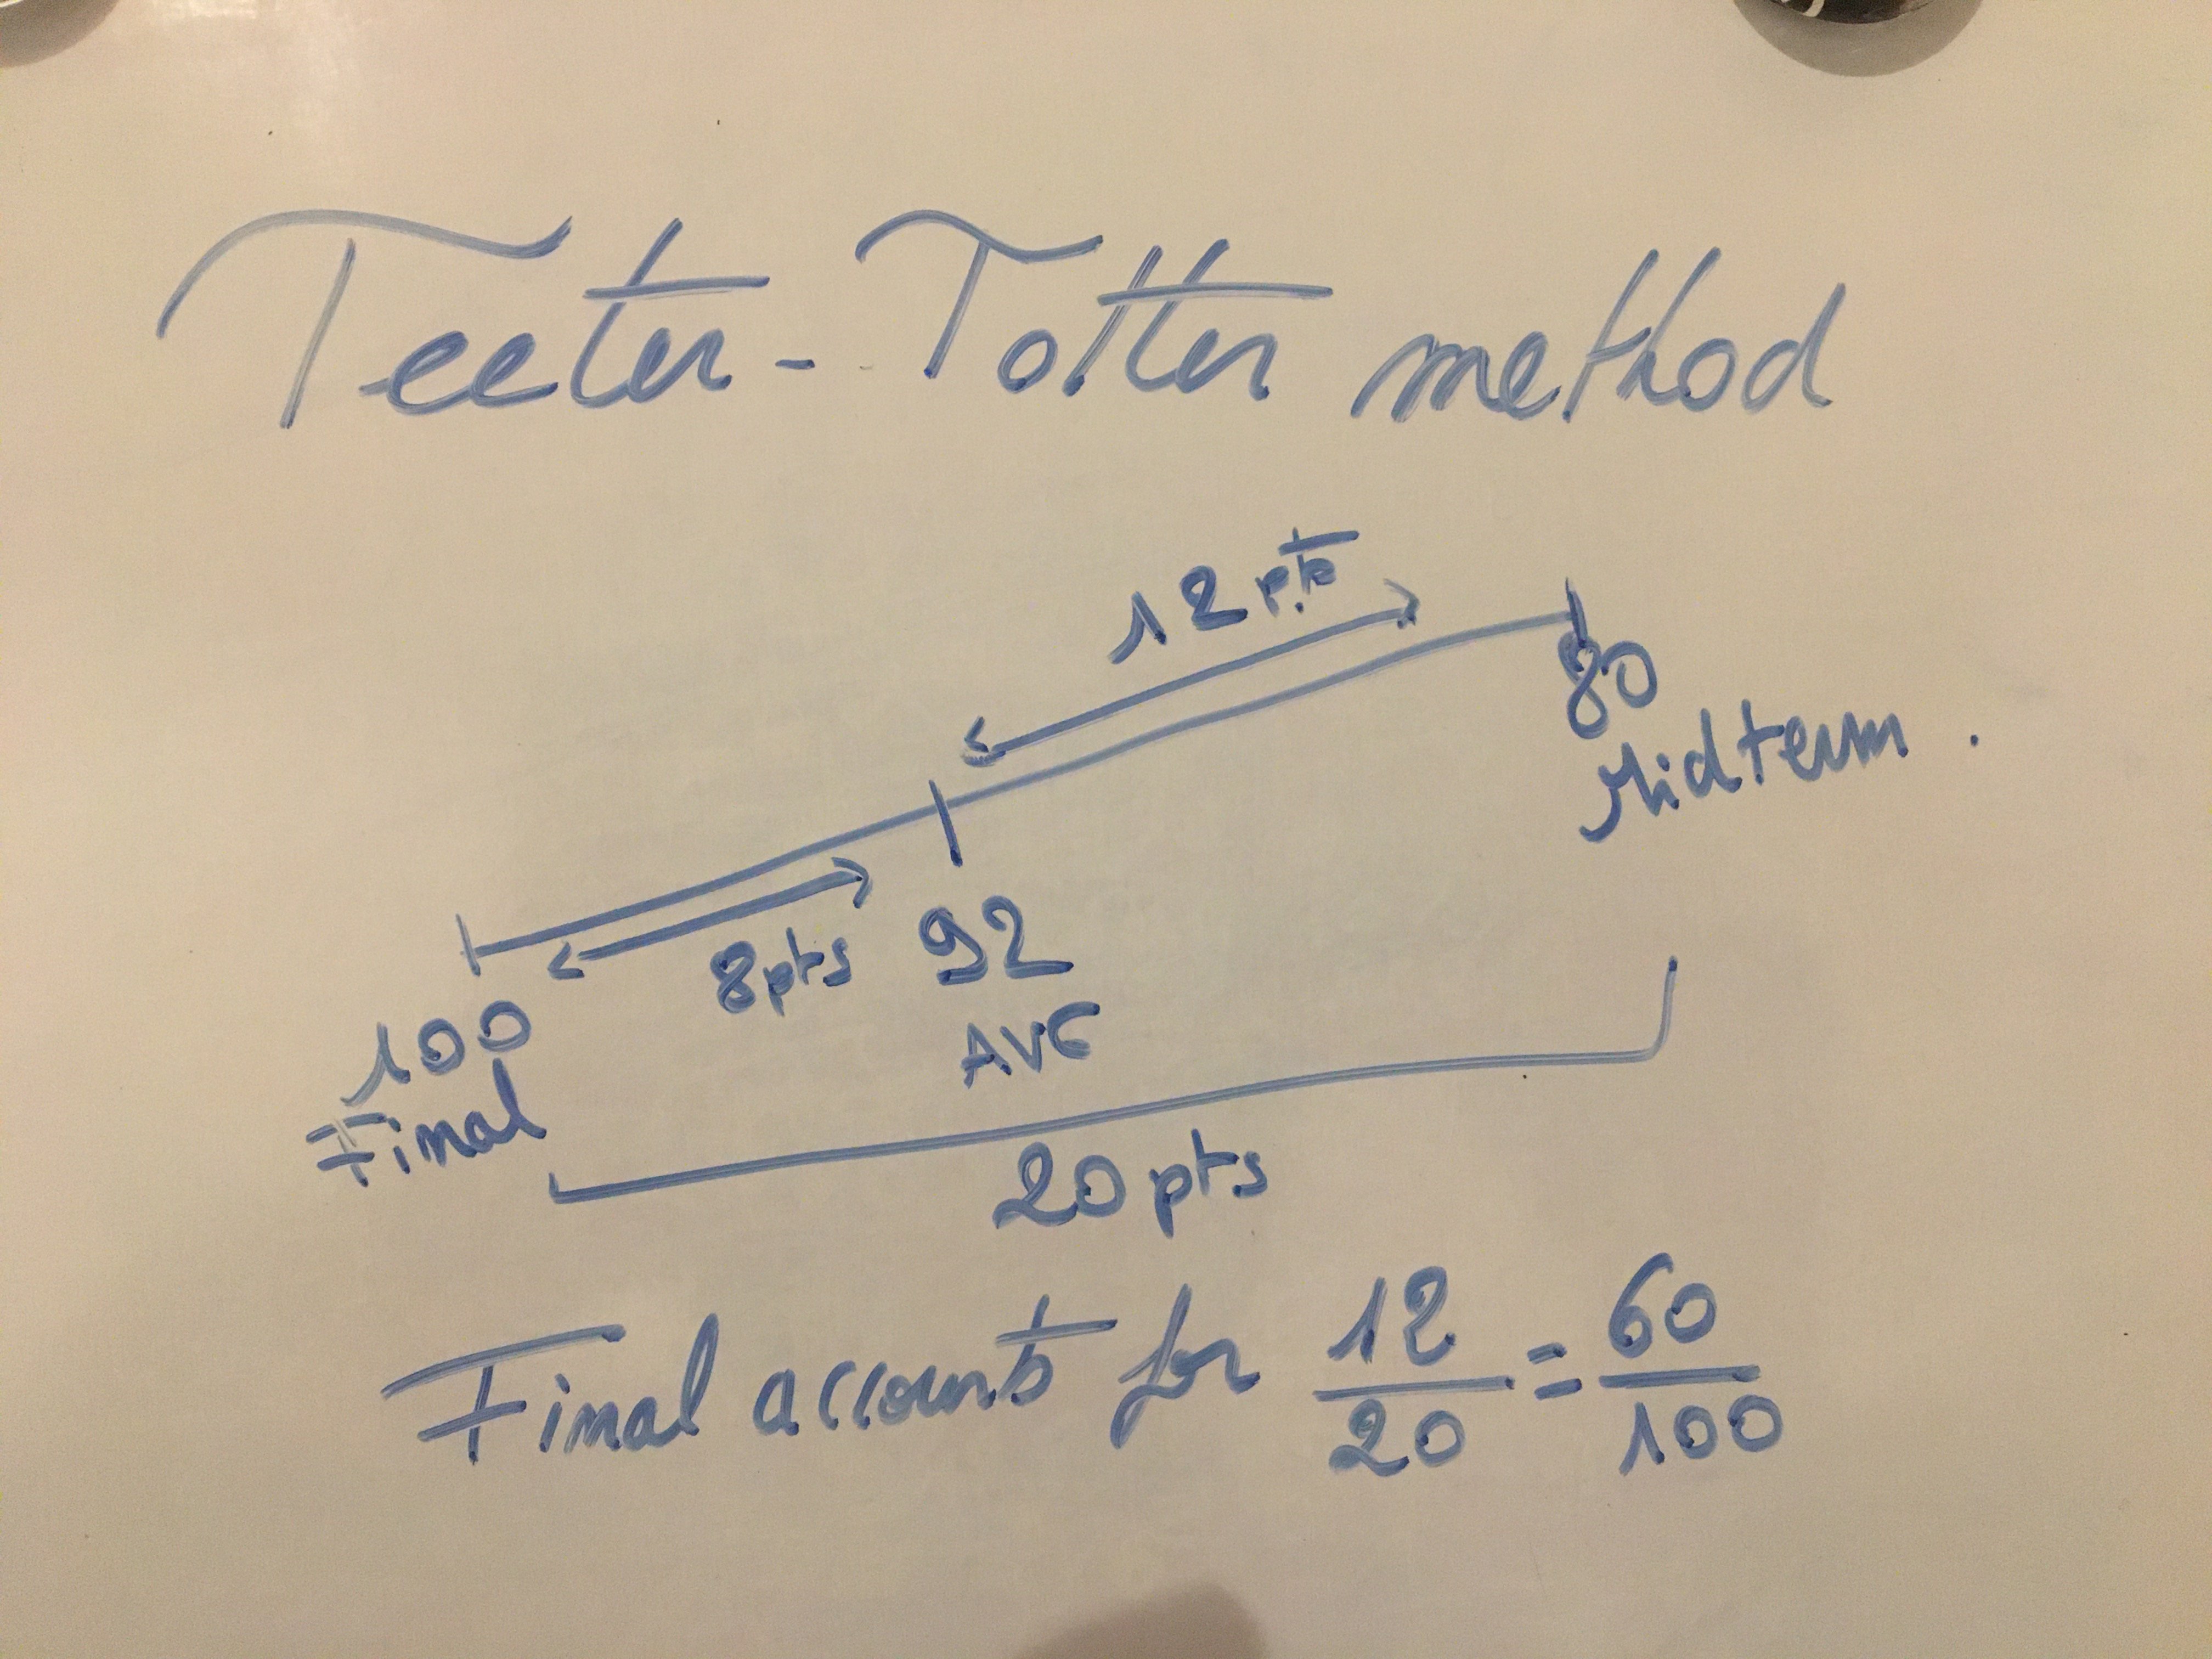 Teeter-Totter method
12 pts
80
Midterm.
8pts
92
AVG
100
Final
20 pts
Final accounts for 12/20 = 60/100